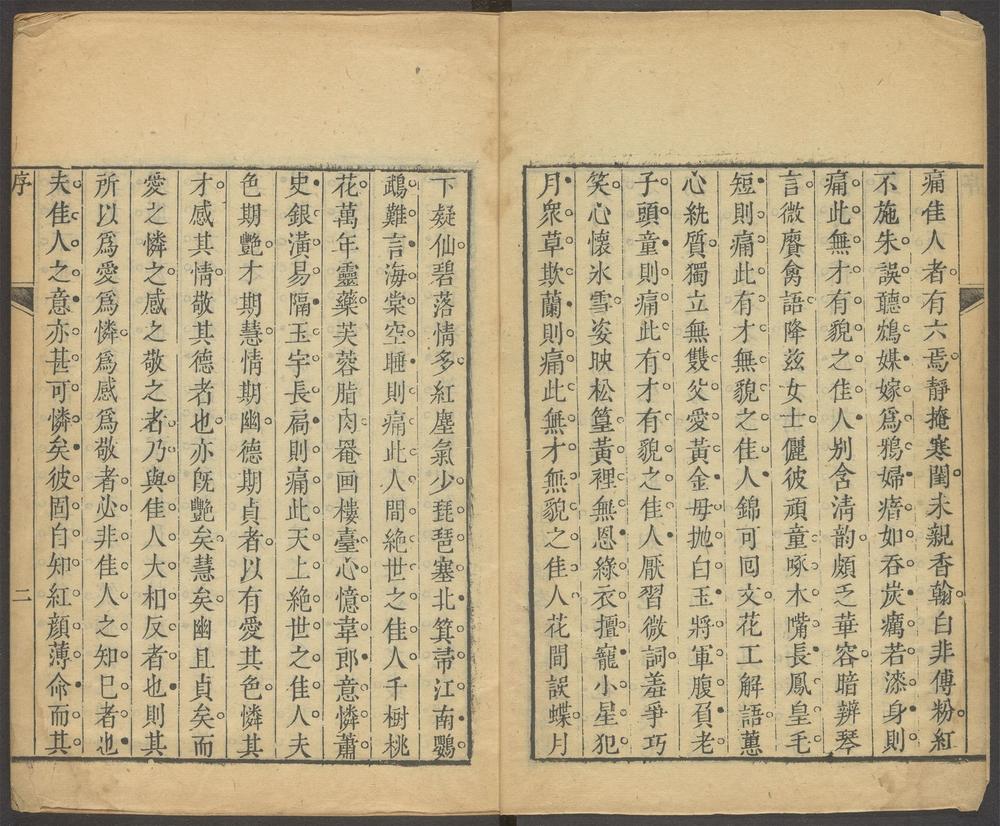 痛佳人者有六焉靜掩寒閨未親香翰白非傅粉紅
不施朱誤聽鴆媒嫁爲鴉婦瘖如吞炭癘若漆身則
痛此無才有貌之佳人別含清韵頗乏華容暗辨琴
言微賡禽語降兹女士儷彼頑童啄木嘴長鳳皇毛
短則痛此有才無貌之佳人錦可囘文花工解語蕙
心紈質獨立無雙父愛黃金母抛白玉將軍腹負老
子頭童則痛此有才有貌之佳人厭習微詞羞爭巧
笑心懷氷雪姿映松篁黃裡無恩綠衣擅寵小星犯
月衆草欺蘭則痛此無才無貌之佳人花間誤蝶月
下疑仙碧落情多紅塵氣少琵琶塞北箕帚江南鸚
鵡難言海棠空睡則痛此人間絶世之佳人千樹桃
花萬年靈藥芙蓉脂肉罨画樓臺心憶韋郎意憐蕭
史銀潢易隔玉宇長扃則痛此天上絶世之佳人夫
色期艷才期慧情期幽德期貞者以有愛其色憐其
才感其情敬其德者也亦旣艷矣慧矣幽且貞矣而
愛之憐之感之敬之者乃與佳人大相反者也則其
所以爲愛爲憐爲感爲敬者必非佳人之知己者也
夫佳人之意亦甚可憐矣彼固自知紅顔薄命而其
序
二